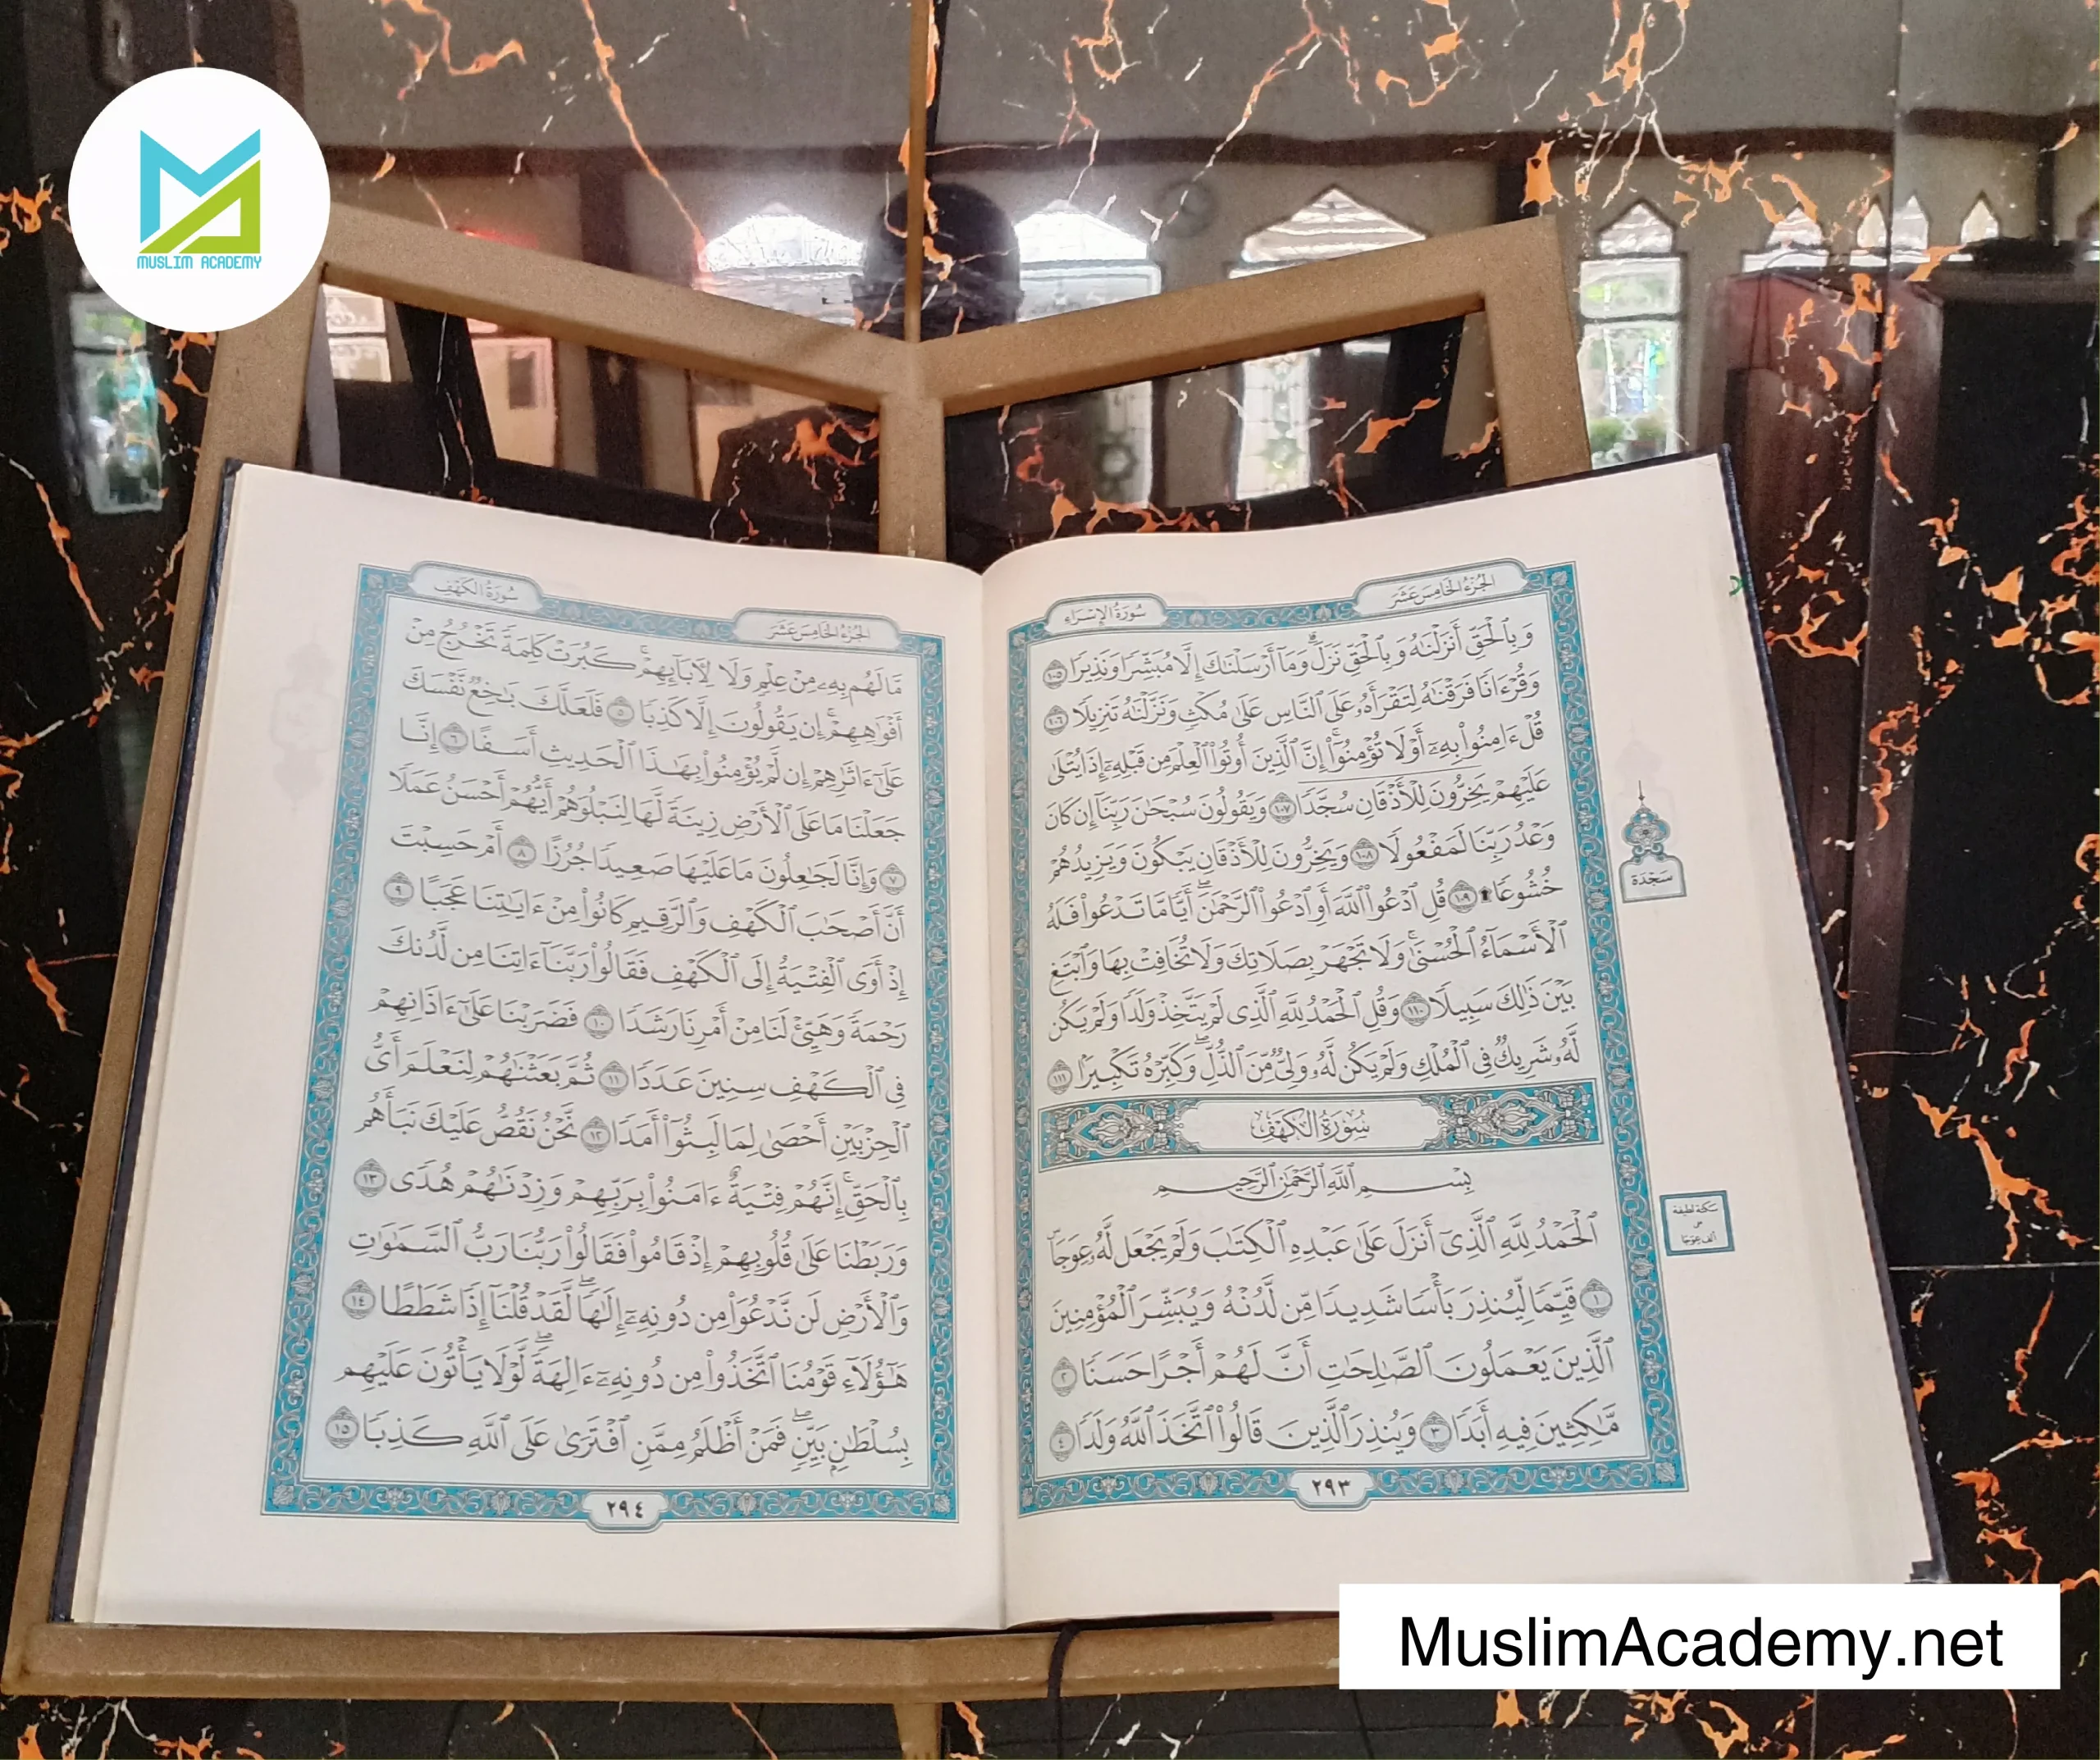 MUSLIM ACADEMY
الجُزْءُ الخَامِسَ عَشَرَ
سُورَةُ الإِسْرَاءِ
وَبِٱلْحَقِّ أَنزَلْنَٰهُ وَبِٱلْحَقِّ نَزَلَۗ وَمَآ أَرْسَلْنَٰكَ إِلَّا مُبَشِّرًا وَنَذِيرًا ١٠٥
وَقُرْءَانًا فَرَقْنَٰهُ لِتَقْرَأَهُۥ عَلَى ٱلنَّاسِ عَلَىٰ مُكْثٍ وَنَزَّلْنَٰهُ تَنزِيلًا ١٠٦
قُلْ ءَامِنُوا۟ بِهِۦٓ أَوْ لَا تُؤْمِنُوٓا۟ۚ إِنَّ ٱلَّذِينَ أُوتُوا۟ ٱلْعِلْمَ مِن قَبْلِهِۦٓ إِذَا يُتْلَىٰ
عَلَيْهِمْ يَخِرُّونَ لِلْأَذْقَانِ سُجَّدًا ١٠٧ وَيَقُولُونَ سُبْحَٰنَ رَبِّنَآ إِن كَانَ
وَعْدُ رَبِّنَا لَمَفْعُولًا ١٠٨ وَيَخِرُّونَ لِلْأَذْقَانِ يَبْكُونَ وَيَزِيدُهُمْ
خُشُوعًا۩ ١٠٩ قُلِ ٱدْعُوا۟ ٱللَّهَ أَوِ ٱدْعُوا۟ ٱلرَّحْمَٰنَۖ أَيًّا مَّا تَدْعُوا۟ فَلَهُ
ٱلْأَسْمَآءُ ٱلْحُسْنَىٰۚ وَلَا تَجْهَرْ بِصَلَاتِكَ وَلَا تُخَافِتْ بِهَا وَٱبْتَغِ
بَيْنَ ذَٰلِكَ سَبِيلًا ١١٠ وَقُلِ ٱلْحَمْدُ لِلَّهِ ٱلَّذِى لَمْ يَتَّخِذْ وَلَدًا وَلَمْ يَكُن
لَّهُۥ شَرِيكٌ فِى ٱلْمُلْكِ وَلَمْ يَكُن لَّهُۥ وَلِىٌّ مِّنَ ٱلذُّلِّۖ وَكَبِّرْهُ تَكْبِيرًۢا ١١١
سُورَةُ الكَهْفِ
بِسْمِ ٱللَّهِ ٱلرَّحْمَٰنِ ٱلرَّحِيمِ
ٱلْحَمْدُ لِلَّهِ ٱلَّذِىٓ أَنزَلَ عَلَىٰ عَبْدِهِ ٱلْكِتَٰبَ وَلَمْ يَجْعَل لَّهُۥ عِوَجَاۜ
١ قَيِّمًا لِّيُنذِرَ بَأْسًا شَدِيدًا مِّن لَّدُنْهُ وَيُبَشِّرَ ٱلْمُؤْمِنِينَ
ٱلَّذِينَ يَعْمَلُونَ ٱلصَّٰلِحَٰتِ أَنَّ لَهُمْ أَجْرًا حَسَنًا ٢
مَّٰكِثِينَ فِيهِ أَبَدًا ٣ وَيُنذِرَ ٱلَّذِينَ قَالُوا۟ ٱتَّخَذَ ٱللَّهُ وَلَدًا ٤
٢٩٣
سَجْدَة
سكتة لطيفة
على
ألف عِوَجَا
الجُزْءُ الخَامِسَ عَشَرَ
سُورَةُ الكَهْفِ
مَّا لَهُم بِهِۦ مِنْ عِلْمٍ وَلَا لِـَٔابَآئِهِمْۚ كَبُرَتْ كَلِمَةً تَخْرُجُ مِنْ
أَفْوَٰهِهِمْۚ إِن يَقُولُونَ إِلَّا كَذِبًا ٥ فَلَعَلَّكَ بَٰخِعٌ نَّفْسَكَ
عَلَىٰٓ ءَاثَٰرِهِمْ إِن لَّمْ يُؤْمِنُوا۟ بِهَٰذَا ٱلْحَدِيثِ أَسَفًا ٦ إِنَّا
جَعَلْنَا مَا عَلَى ٱلْأَرْضِ زِينَةً لَّهَا لِنَبْلُوَهُمْ أَيُّهُمْ أَحْسَنُ عَمَلًا
٧ وَإِنَّا لَجَٰعِلُونَ مَا عَلَيْهَا صَعِيدًا جُرُزًا ٨ أَمْ حَسِبْتَ
أَنَّ أَصْحَٰبَ ٱلْكَهْفِ وَٱلرَّقِيمِ كَانُوا۟ مِنْ ءَايَٰتِنَا عَجَبًا ٩
إِذْ أَوَى ٱلْفِتْيَةُ إِلَى ٱلْكَهْفِ فَقَالُوا۟ رَبَّنَآ ءَاتِنَا مِن لَّدُنكَ
رَحْمَةً وَهَيِّئْ لَنَا مِنْ أَمْرِنَا رَشَدًا ١٠ فَضَرَبْنَا عَلَىٰٓ ءَاذَانِهِمْ
فِى ٱلْكَهْفِ سِنِينَ عَدَدًا ١١ ثُمَّ بَعَثْنَٰهُمْ لِنَعْلَمَ أَىُّ
ٱلْحِزْبَيْنِ أَحْصَىٰ لِمَا لَبِثُوٓا۟ أَمَدًا ١٢ نَّحْنُ نَقُصُّ عَلَيْكَ نَبَأَهُم
بِٱلْحَقِّۚ إِنَّهُمْ فِتْيَةٌ ءَامَنُوا۟ بِرَبِّهِمْ وَزِدْنَٰهُمْ هُدًى ١٣
وَرَبَطْنَا عَلَىٰ قُلُوبِهِمْ إِذْ قَامُوا۟ فَقَالُوا۟ رَبُّنَا رَبُّ ٱلسَّمَٰوَٰتِ
وَٱلْأَرْضِ لَن نَّدْعُوَا۟ مِن دُونِهِۦٓ إِلَٰهًاۖ لَّقَدْ قُلْنَآ إِذًا شَطَطًا ١٤
هَٰٓؤُلَآءِ قَوْمُنَا ٱتَّخَذُوا۟ مِن دُونِهِۦٓ ءَالِهَةًۖ لَّوْلَا يَأْتُونَ عَلَيْهِم
بِسُلْطَٰنٍۭ بَيِّنٍۖ فَمَنْ أَظْلَمُ مِمَّنِ ٱفْتَرَىٰ عَلَى ٱللَّهِ كَذِبًا ١٥
٢٩٤
MuslimAcademy.net